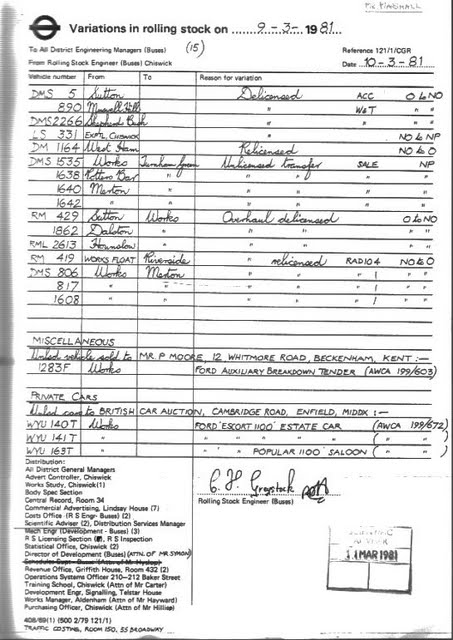 MR MARSHALL
Variations in rolling stock on 9-3-1981
To All District Engineering Managers (Buses) (15) Reference 121/1/CGR
From Rolling Stock Engineer (Buses) Chiswick Date 10-3-81
Vehicle number From To Reason for variation
DMS 5 Sutton Delicensed ACC O to NO
890 Muswell Hill " W&T " "
DMS 2266 Shepherd Bush " " " "
LS 331 EXPTL CHISWICK NO to NP
DM 1164 West Ham Relicensed NO to O
DMS 1535 Works Turnham Green Unlicensed transfer SALE NP
1638 Potters Bar " " " " "
1640 Merton " " " " "
1642 " " " " " "
RM 429 Sutton Works Overhaul delicensed O to NO
1862 Dalston " " " " "
RML 2613 Hounslow " " " " "
RM 419 WORKS FLOAT Riverside " relicensed RAD104 NO to O
DMS 806 Works Merton " " " 1 " "
817 " " " " " 1 " "
1608 " " " " " 1 " "
MISCELLANEOUS
Unlicd vehicle sold to MR. P MOORE, 12 WHITMORE ROAD, BECKENHAM, KENT :-
1283F Works FORD AUXILIARY BREAKDOWN TENDER (AWCA 199/603)
PRIVATE CARS
Unlicd cars to BRITISH CAR AUCTION, CAMBRIDGE ROAD, ENFIELD, MIDDX :-
WYU 140T Works FORD 'ESCORT 1100' ESTATE CAR (AWCA 199/672)
WYU 141T " " " " " " ( " " )
WYU 163T " " POPULAR 1100' SALOON ( " " )
Distribution:
All District General Managers
Advert Controller, Chiswick
Works Study, Chiswick(1)
Body Spec Section
Central Record, Room 34
Commercial Advertising, Lindsay House (7)
Costs Office (R S Engr- Buses) (2)
Scientific Adviser (2), Distribution Services Manager
Mech Engr (Development - Buses) (3)
R S Licensing Section, R S Inspection
Statistical Office, Chiswick
Director of Development (Buses) (ATTN OF MR SYMON)
Schedules Supt - Buses (Attn of Mr Hyslop)
Revenue Office, Griffith House, Room 432 (2)
Operations Systems Officer 210-212 Baker Street
Training School, Chiswick (Attn of Mr Carter)
Development Engr, Signalling, Telstar House
Works Manager, Aldenham (Attn of Mr Hayward)
Purchasing Officer, Chiswick (Attn of Mr Hillier)
Rolling Stock Engineer (Buses)
11 MAR 1981
408/69(1) (500 2/79 121/1)
TRAFFIC COSTING, ROOM 150, 55 BROADWAY